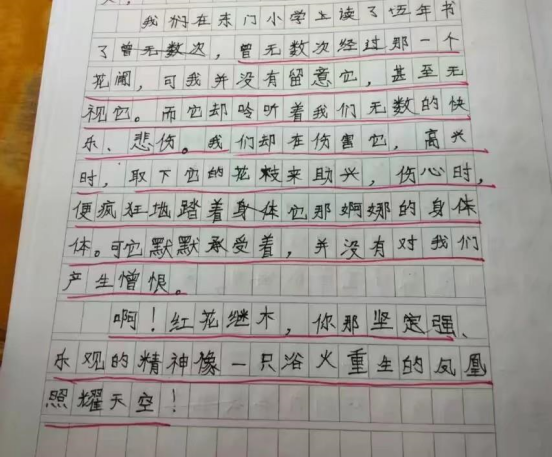 我们在东门小学上读了伍年书
了曾无数次，曾无数次经过那一个
花阃，可我并没有留意它，甚至无
视它。而它却呤听着我们无数的快
乐、悲伤。我们却在伤害它，高兴
时，取下它的花枝来助兴，伤心时，
便疯狂地踏着身体它那婀娜的身体
体。可它默默承受着，并没有对我们
产生憎恨。
啊！红花继木，你那坚定强、
乐观的精神像一只浴火重生的凤凰
照耀天空！